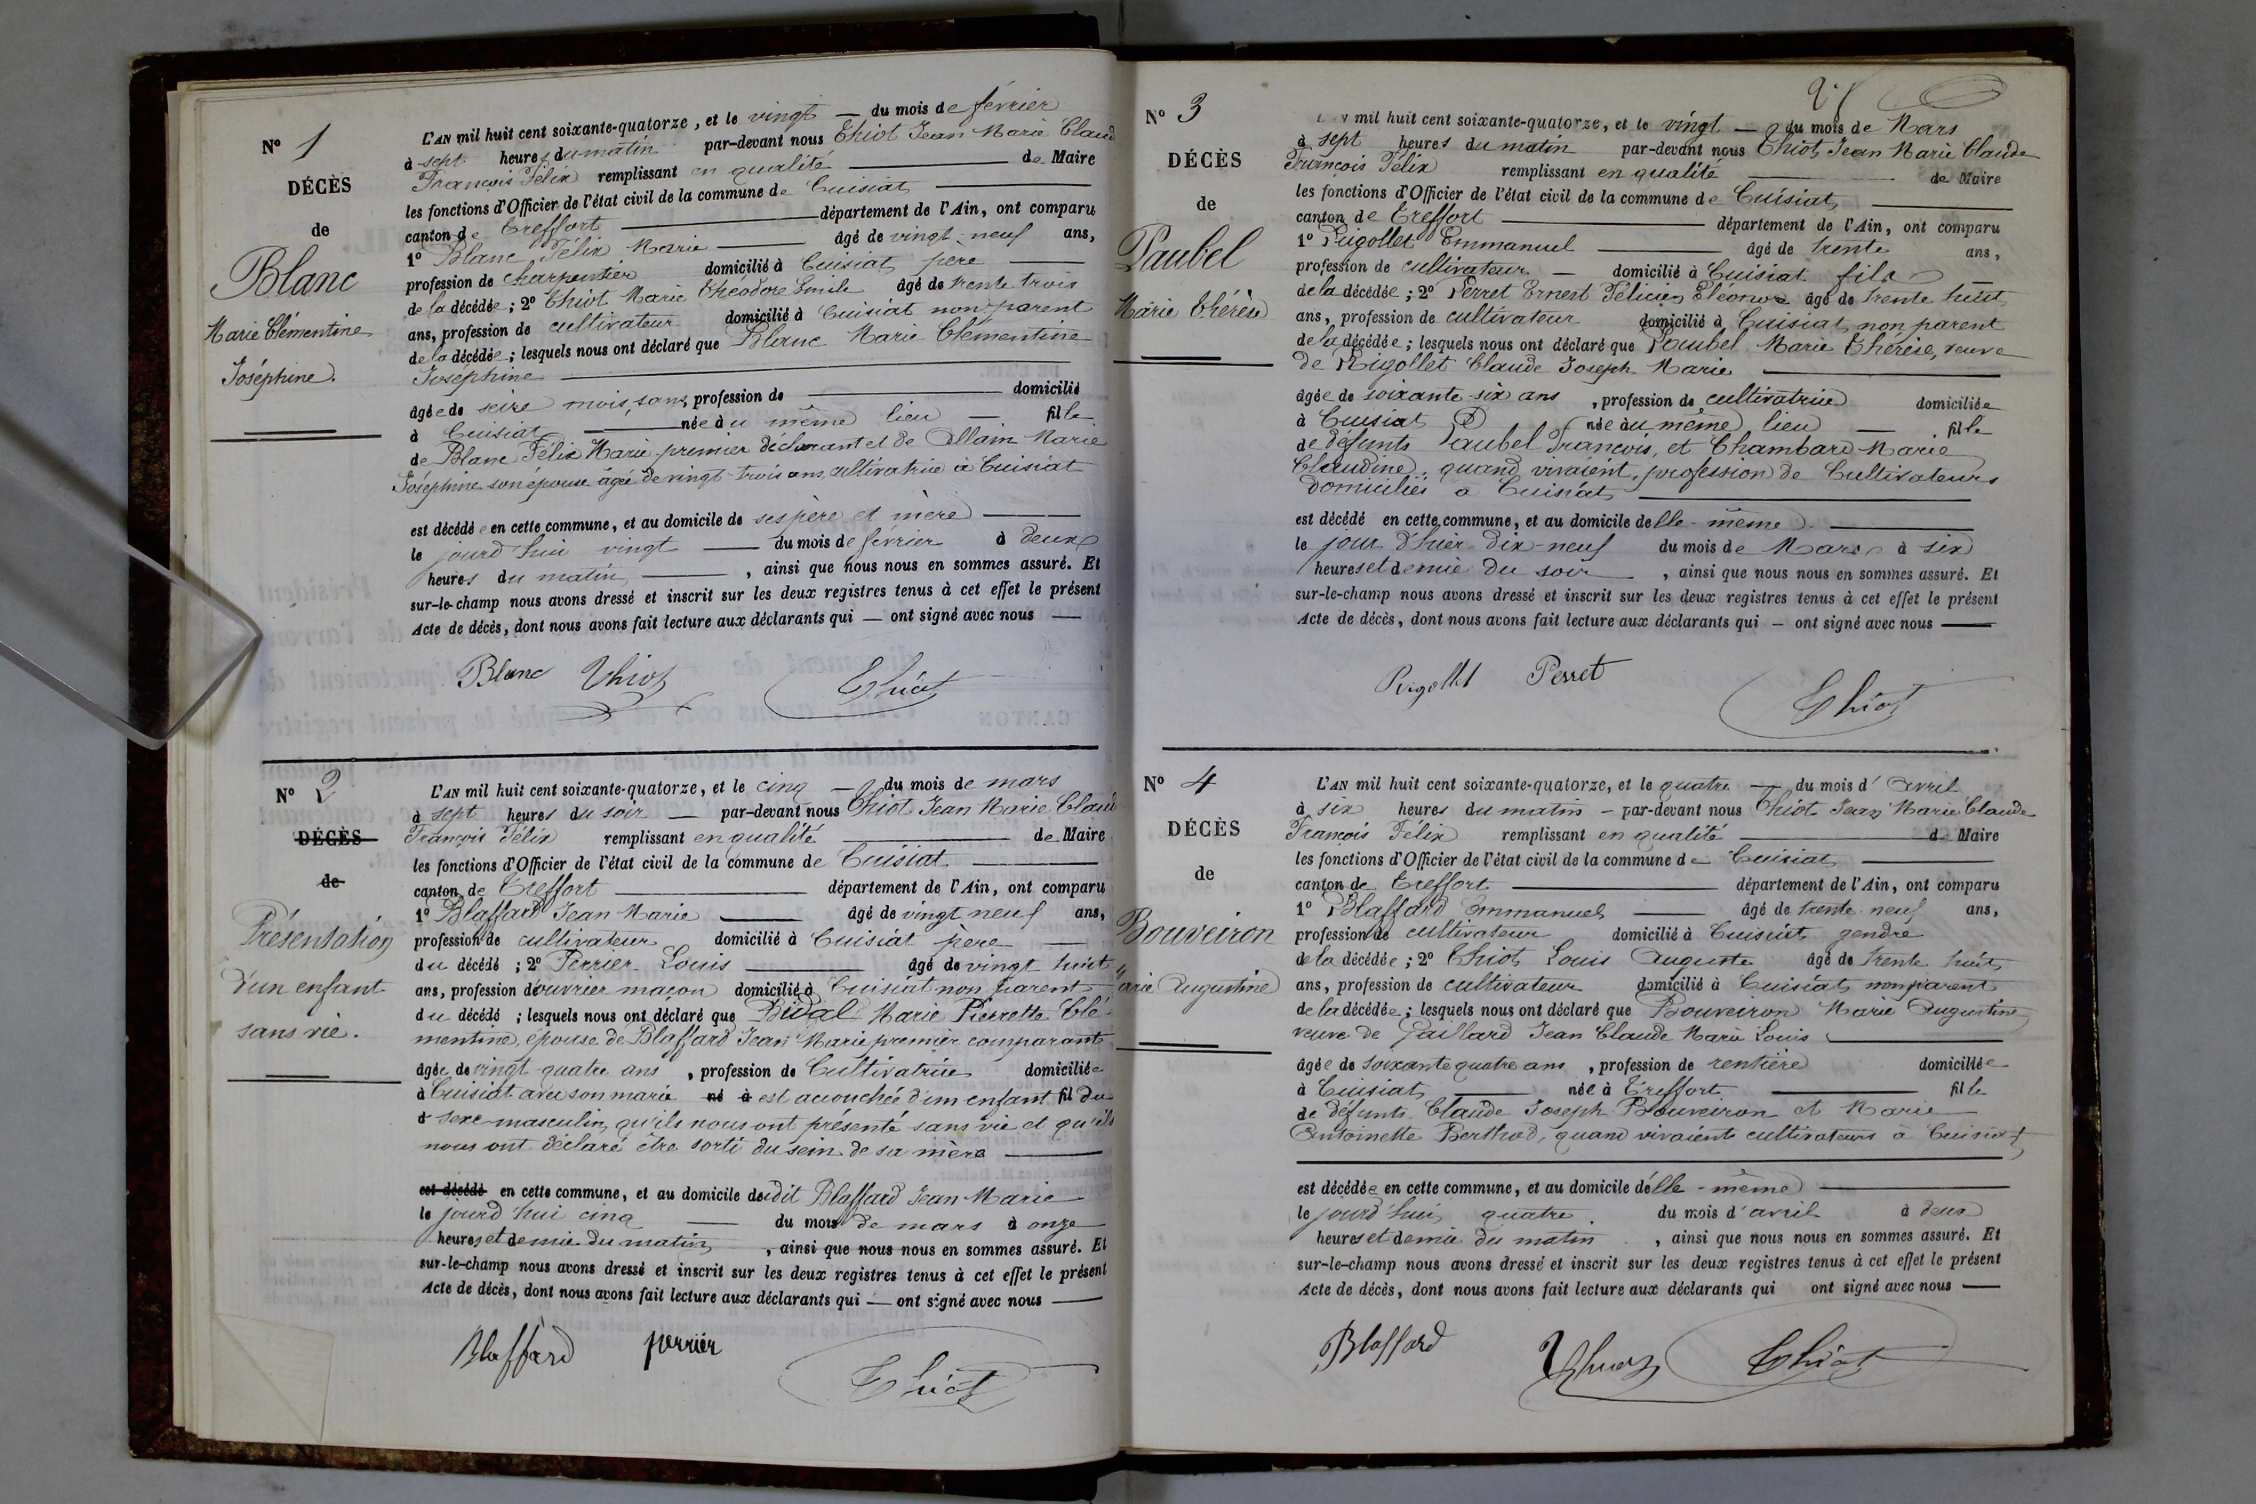 N° 1
DÉCÈS
de
Blanc
Marie Clémentine
Joséphine.
L'AN mil huit cent soixante-quatorze, et le vingt — du mois de février
à sept heures du matin par-devant nous Thiot Jean Marie Claude
François Félix remplissant en qualité — de Maire
les fonctions d'Officier de l'état civil de la commune de Cuisiat —
canton de Treffort — département de l'Ain, ont comparu
1° Blanc Félix Marie — âgé de vingt-neuf ans,
profession de charpentier domicilié à Cuisiat père —
de la décédée; 2° Thiot Marie Théodore Emile âgé de trente trois
ans, profession de cultivateur domicilié à Cuisiat non parent
de la décédée; lesquels nous ont déclaré que Blanc Marie Clémentine
Joséphine —
âgée de seize mois, sans profession de — domicilié
à Cuisiat — née au même lieu — fille
de Blanc Félix Marie premier déclarant et de Allain Marie
Josephine son épouse âgée de vingt-trois ans, cultivatrice à Cuisiat
est décédée en cette commune, et au domicile de ses père et mère —
le jourd'hui vingt — du mois de février à deux
heures du matin —, ainsi que nous nous en sommes assuré. Et
sur-le-champ nous avons dressé et inscrit sur les deux registres tenus à cet effet le présent
Acte de décès, dont nous avons fait lecture aux déclarants qui — ont signé avec nous —
Blanc Thiot Thiot
N° 2
DÉCÈS
de
Présentation
d'un enfant
sans vie.
L'AN mil huit cent soixante-quatorze, et le cinq — du mois de mars
à sept heures du soir — par-devant nous Thiot Jean Marie Claude
François Félix remplissant en qualité — de Maire
les fonctions d'Officier de l'état civil de la commune de Cuisiat —
canton de Treffort — département de l'Ain, ont comparu
1° Blaffard Jean Marie — âgé de vingt neuf ans,
profession de cultivateur domicilié à Cuisiat père —
du décédé; 2° Perrier Louis — âgé de vingt huit
ans, profession d'ouvrier maçon domicilié à Cuisiat non parent
du décédé; lesquels nous ont déclaré que Bidal Marie Pierrette Clé-
mentine, épouse de Blaffard Jean Marie premier comparant
âgée de vingt quatre ans, profession de Cultivatrice domiciliée
à Cuisiat avec son marie né à est accouchée d'un enfant fil du
d sexe masculin, qu'ils nous ont présenté sans vie et qu'ils
nous ont déclaré être sorti du sein de sa mère —
est décédé en cette commune, et au domicile dudit Blaffard Jean Marie
le jourd'hui cinq — du mois de mars à onze
heures et demie du matin, ainsi que nous nous en sommes assuré. Et
sur-le-champ nous avons dressé et inscrit sur les deux registres tenus à cet effet le présent
Acte de décès, dont nous avons fait lecture aux déclarants qui — ont signé avec nous —
Blaffard perrier Thiot
N° 3
DÉCÈS
de
Paubel
Marie Thérèse
L'AN mil huit cent soixante-quatorze, et le vingt — du mois de Mars
à sept heures du matin par-devant nous Thiot Jean Marie Claude
François Félix remplissant en qualité — de Maire
les fonctions d'Officier de l'état civil de la commune de Cuisiat —
canton de Treffort — département de l'Ain, ont comparu
1° Rigollet Emmanuel — âgé de trente ans,
profession de cultivateur — domicilié à Cuisiat fils
de la décédée; 2° Perret Ernest Félicien Eléonore âgé de trente huit
ans, profession de cultivateur domicilié à Cuisiat non parent
de la décédée; lesquels nous ont déclaré que Paubel Marie Thérèse, veuve
de Rigollet Claude Joseph Marie —
âgée de soixante-six ans, profession de cultivatrice domiciliée
à Cuisiat née au même lieu — fille
de défunts Paubel François, et Chambard Marie
Claudine, quand vivaient, profession de Cultivateurs
domiciliés à Cuisiat —
est décédé en cette commune, et au domicile d'elle-même —
le jour d'hier dix-neuf du mois de Mars à six
heures et demie du soir —, ainsi que nous nous en sommes assuré. Et
sur-le-champ nous avons dressé et inscrit sur les deux registres tenus à cet effet le présent
Acte de décès, dont nous avons fait lecture aux déclarants qui — ont signé avec nous —
Rigollet Perret Thiot
N° 4
DÉCÈS
de
Bouveiron
arie Augustine
L'AN mil huit cent soixante-quatorze, et le quatre — du mois d'Avril
à six heures du matin — par-devant nous Thiot Jean Marie Claude
François Félix remplissant en qualité — de Maire
les fonctions d'Officier de l'état civil de la commune de Cuisiat —
canton de Treffort — département de l'Ain, ont comparu
1° Blaffard Emmanuel — âgé de trente-neuf ans,
profession de cultivateur domicilié à Cuisiat gendre
de la décédée; 2° Thiot Louis Auguste âgé de trente huit
ans, profession de cultivateur domicilié à Cuisiat, non parent
de la décédée; lesquels nous ont déclaré que Bouveiron Marie Augustine
veuve de Gaillard Jean Claude Marie Louis —
âgée de soixante quatre ans, profession de rentière domiciliée
à Cuisiat — née à Treffort — fille
de défunts Claude Joseph Bouveiron et Marie
Antoinette Berthod, quand vivaient cultivateurs à Cuisiat
est décédée en cette commune, et au domicile d'elle-même —
le jourd'hui quatre du mois d'avril à deux
heures et demie du matin, ainsi que nous nous en sommes assuré. Et
sur-le-champ nous avons dressé et inscrit sur les deux registres tenus à cet effet le présent
Acte de décès, dont nous avons fait lecture aux déclarants qui ont signé avec nous —
Blaffard Thiot Thiot